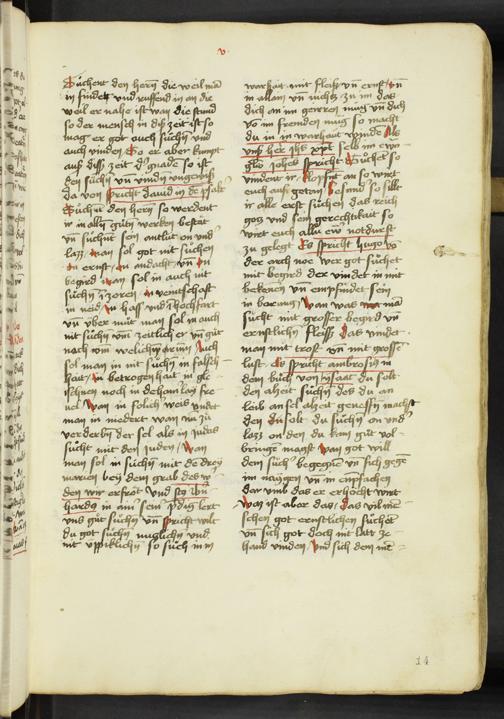 v
Suchent den hern die weil man
in findet vnd ruffend in an die
weil er nahe ist wan die stund
so der mensch in diser zeit ist so
mag er got auch suchn vnd
auch vinden So er aber kumpt
auß diser zeit d gnade so ist
den suchn vn vindn vngewiß
da von spricht dauid in de psalt
Suchent den hern so werdent
ir in alln guten werken bestät
vn suchent sein antlütz on vnd
lazz man sol got nit suchen
on ernst on andacht vn on
begird man sol in auch nit
suchn in zoren in veintschaft
in neid in hass vnd in hochfart
vn vber müt man sol in auch
nit suchn vm zeitlicher er vn gut
nach vm welichen Auch
sol man in nit suchn in falsch
hait in betrogenhait in gle
ichsnen noch in
wan in solich weis vindet
man in niedert wan in zu
verderbn der sel als in judas
sucht mit den juden wan
man sol in suchn mit de drey
marien bey dem grab des
den wir erfröt vnd sey bern
hardg in ainer sein pdig lert
vns got suchn vn spricht wilt
du got suchn nutzlichn vnd
nit vppiklichn so such in in
warhait mit fleiß vn ernst vn
in allem vn nichtz zu im das
dich an im geirren mug vn dich
vo im fremden mug so macht
du in in warhait vinden Als
vnß her jhs xpt selb im ewn
glio johes spricht Suchet so
vindent ir klopfet an so wirt
euch auf getan besunder so sült
ir alle erst suchen das reich
gotz vnd sein gerechtikait so
wirt euch alle ewr notdurft
zu gelegt Es spricht hugo vo
der arch noe wer got suchet
mit begird der vindet in mit
bekenen vn empfindet sein
in wan was man
sucht mit grosser begird vn
ernstlichem fleiss das vindet
man mit trost vn mit grosse
lust Es spricht ambrosius in
dem buch von ysaac du solt
den alzeit suchn des du an
leib an sel alzeit geniessen machst
den du solt du suchn on vnd
lazz on den du kain gut vol
bringe magst wan got will
dem such begegen vn sich gege
im naygen vn in empfachen
dar vmb das er erhocht wirt
Won ist aber das das vil men
schen got ernstlichen suchet
vn sich got doch nit latt ze
hand vinden vnd sich dem me
14